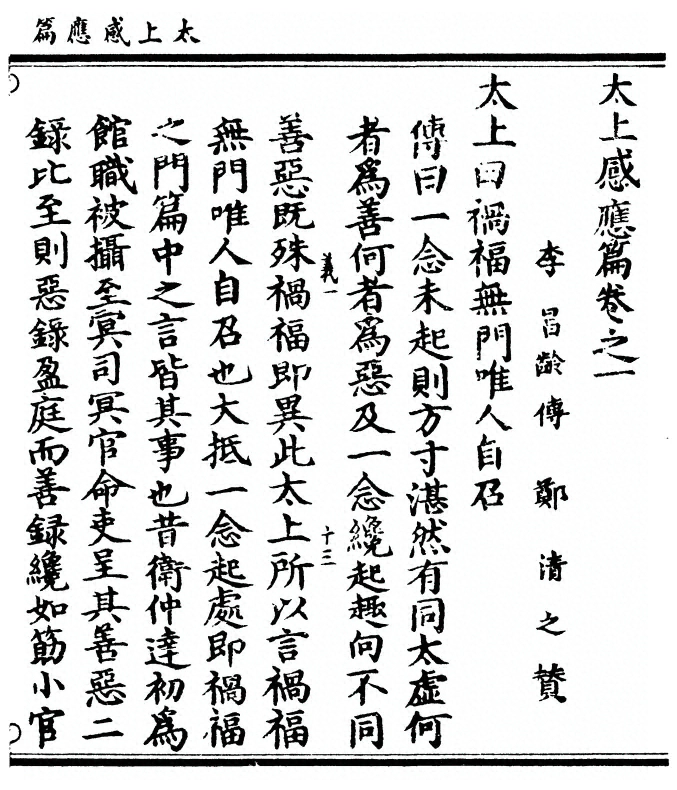 太上感應篇
太上感應篇卷之一
李昌齡傳 鄭清之贊
太上曰禍福無門唯人自召
傳曰一念未起則方寸湛然有同太虛何
者爲善何者爲惡及一念纔起趣向不同
義一 十三
善惡既殊禍福即異此太上所以言禍福
無門唯人自召也大抵一念起處即禍福
之門篇中之言皆其事也昔衛仲達初爲
館職被攝至冥司冥官命吏呈其善惡二
錄比至則惡錄盈庭而善録纔如筯小官